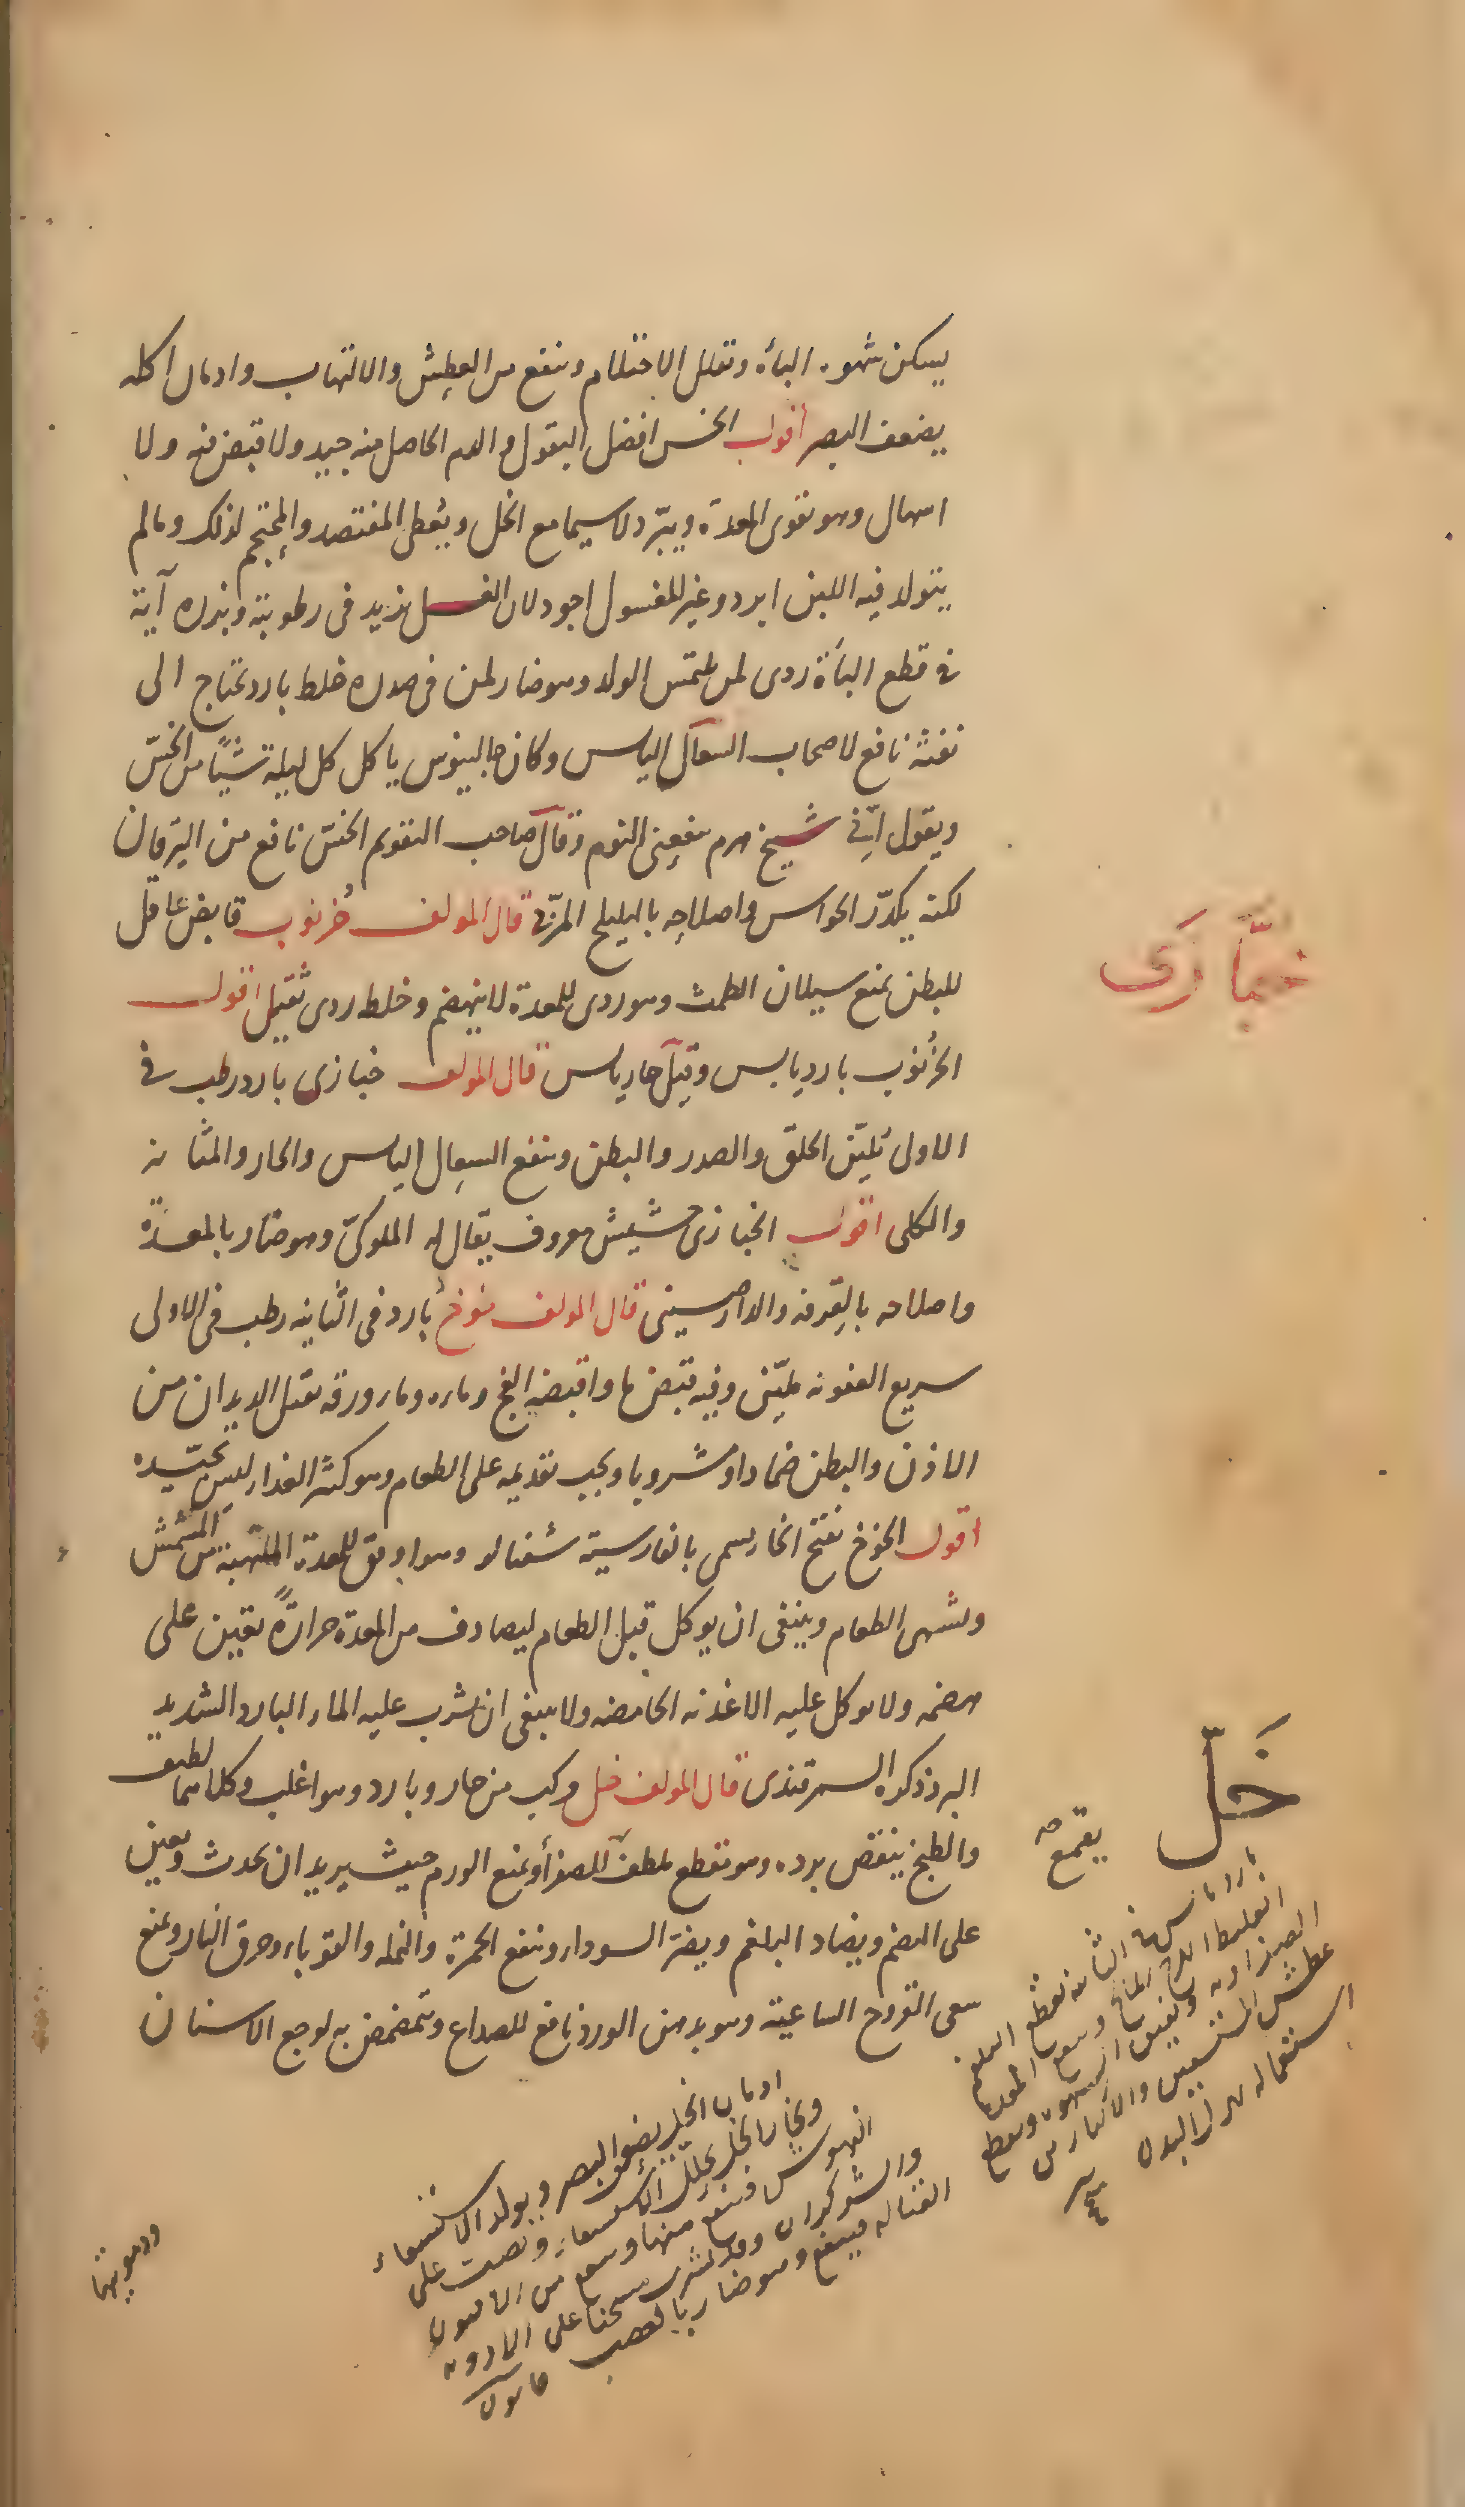 يسكن شهوة الباه وتقلل الاحتلام وينفع من العطش والالتهاب وادمان اكله
يضعف البصر اقول الخس افضل البقول والدم الحاصل منه جيد ولا قبض فيه ولا
اسهال وهو يقوى المعدة ويبرّد لا سيما مع الخل ويُعطى المفتصد والمحتجم لذلك ومالم
يتولد فيه اللبن ابرد وغير المغسول اجود لان الغسل يزيد فى رطوبته وبزره آية
فى قطع الباءة ردى لمن يلتمس الولد وهو ضار لمن فى صدره خلط بارد يحتاج الى
نفثه نافع لاصحاب السعال اليابس وكان جالينوس ياكل كل ليلة شيئًا من الخسّ
ويقول انّى شيخ هرم ينفعنى النوم وقال صاحب التقويم الخسّ نافع من اليرقان
لكنه يكدّر الحواس واصلاحه بالهليلج المربّى قال المولف خُرنوب قابض عاقل
للبطن يمنع سيلان الطمث وهو ردى للمعدة لا ينهضم وخلطه ردى ثقيل اقول
الخُرنوب بارد يابس وقيل حار يابس قال المولف خبازى بارد رطب فى
الاولى يُليّن الحلق والصدر والبطن وينفع السعال اليابس والحار والمثانه
والكلى اقول الخبازى حشيش معروف يقال له الملوكىّ وهو ضار بالمعدة
واصلاحه بالقرفه والدارصينى قال المولف خوخ بارد فى الثانيه رطب فى الاولى
سريع العفونه مليّن وفيه قبض ما واقبضه الفج وماوه وماء ورقه يقتل الديدان من
الاذن والبطن ضمادا ومشروبا ويجب تقديمه على الطعام وهو كثير الغذاء ليس بجيّده
اقول الخوخ بفتح الخاء يسمى بالفارسية شفتالو وهو اوفق للمعدة الملتهبة من المشمش
ويشهى الطعام وينبغى ان يوكل قبل الطعام ليصادف من المعدة حرارةً تعين على
هضمه ولا يوكل عليه الاغذيه الحامضه ولا ينبغى ان يشرب عليه الماء البارد الشديد
البرد ذكره السمرقندى قال المولف خل مركب من حار وبارد وهو اغلب وكلاهما لطيف
والطبخ ينقص برده وهو يقطع يلطف الصفرا ويمنع الورم حيث يريد ان يحدث ويعين
على الهضم ويضاد البلغم ويضرّ السوداء وينفع الحمرة والنمله والقوباء وحرق النار ويمنع
سعى القروح الساعية وهو بدهن الورد نافع للصداع ويتمضمض به لوجع الاسنان
خبّازَى
خَلّ
يقمع
انفليط
الصفراويه
عطش المستسقين
استعماله يهزل البدن
ادمان الخل يضعف البصر ويولد الاستسقاء
وبخار الخل يحلل الاستسقاء ويصب على
النهوش فينفع منها وينفع من الافيون
والشوكران وقد يشرب مسخنا على الادويه
القتاله فينفع وهو ضار بالعصب
ودمويتها